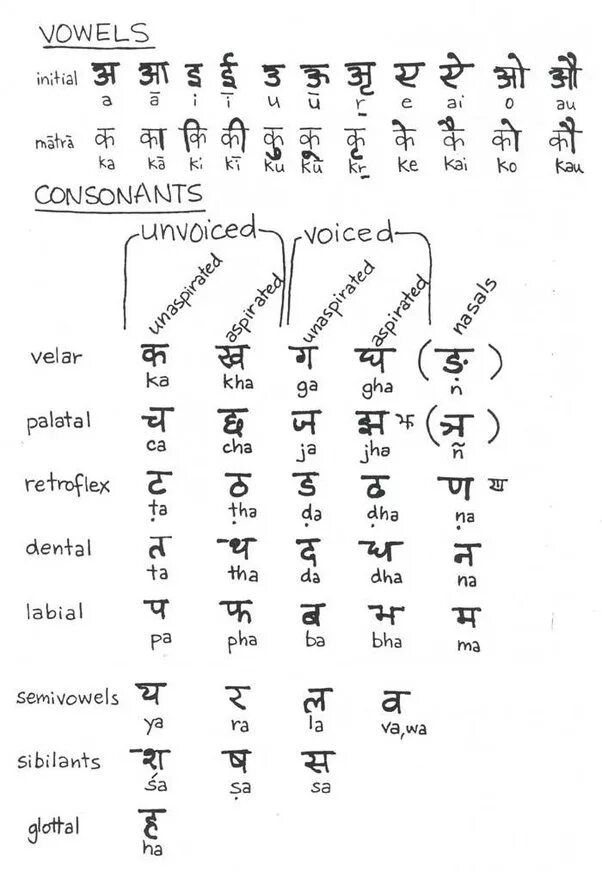 VOWELS
initial अ आ इ ई उ ऊ ऋ ए ऐ ओ औ
a ā i ī u ū r̲ e ai o au
mātrā क का कि की कु कू कृ के कै को कौ
ka kā ki kī ku kū kr̲ ke kai ko kau
CONSONANTS
unvoiced voiced
unaspirated aspirated unaspirated aspirated nasals
velar क ख ग घ (ङ)
ka kha ga gha ṅ
palatal च छ ज झ झ (ञ)
ca cha ja jha ñ
retroflex ट ठ ड ढ ण ण
ṭa ṭha ḍa ḍha ṇa
dental त थ द ध न
ta tha da dha na
labial प फ ब भ म
pa pha ba bha ma
semivowels य र ल व
ya ra la va,wa
sibilants श ष स
śa ṣa sa
glottal ह
ha